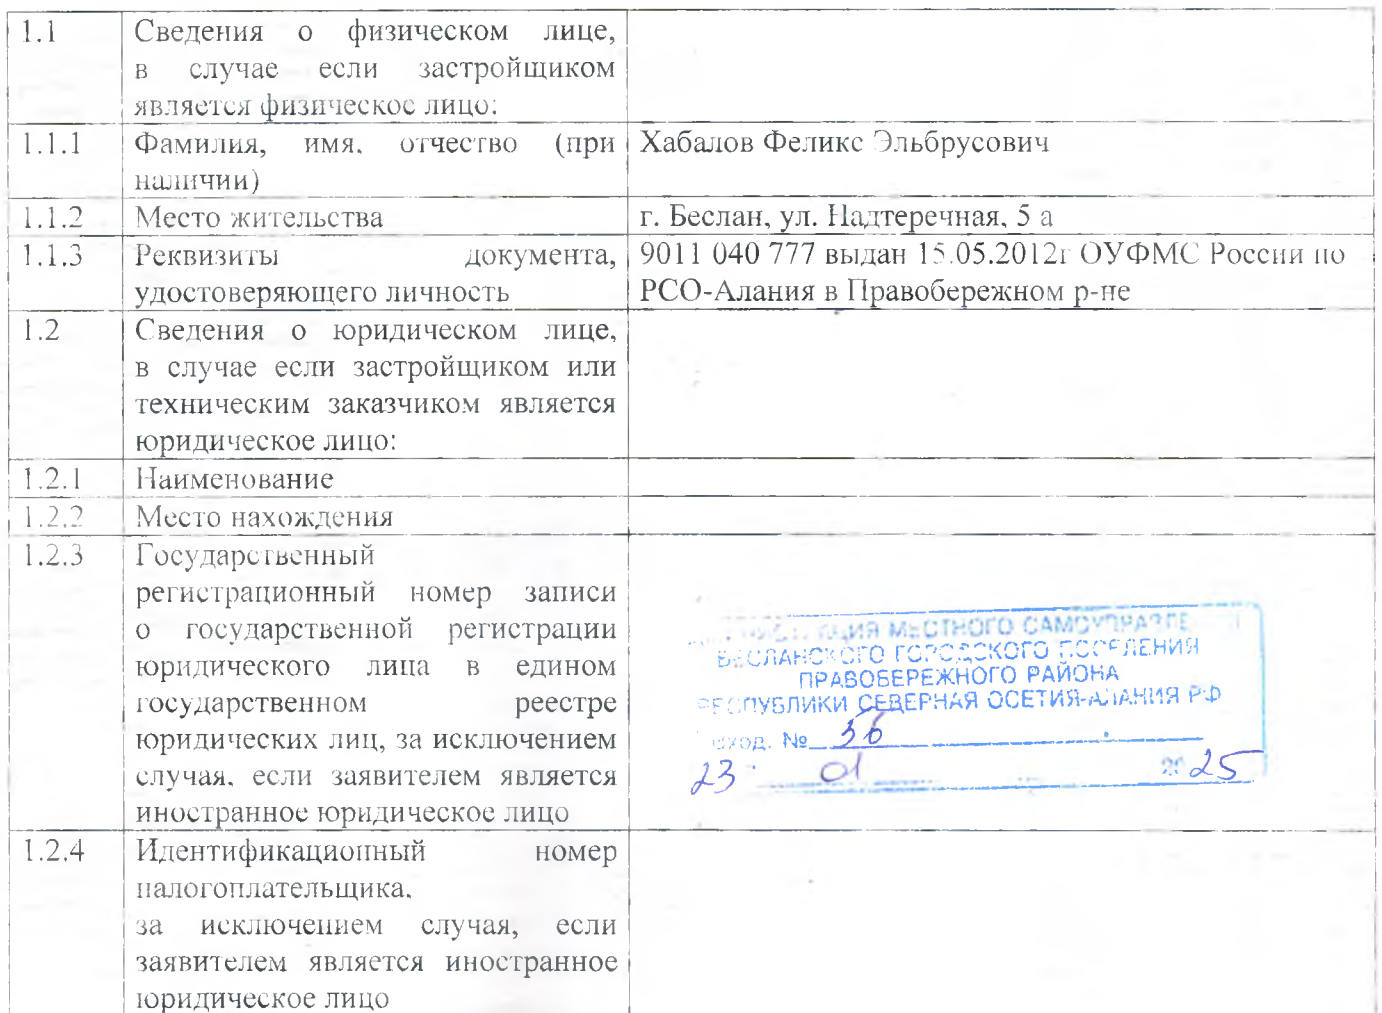 1.1 Сведения о физическом лице,
в случае если застройщиком
является физическое лицо:
1.1.1 Фамилия, имя, отчество (при Хабалов Феликс Эльбрусович
наличии)
1.1.2 Место жительства г. Беслан, ул. Надтеречная, 5 а
1.1.3 Реквизиты документа, 9011 040 777 выдан 15.05.2012г ОУФМС России по
удостоверяющего личность РСО-Алания в Правобережном р-не
1.2 Сведения о юридическом лице,
в случае если застройщиком или
техническим заказчиком является
юридическое лицо:
1.2.1 Наименование
1.2.2 Место нахождения
1.2.3 Государственный
регистрационный номер записи
о государственной регистрации
юридического лица в едином
государственном реестре
юридических лиц, за исключением
случая, если заявителем является
иностранное юридическое лицо
МЕСТНОГО
БЕСЛАНСКОГО ГОРОДСКОГО ПОСЕЛЕНИЯ
ПРАВОБЕРЕЖНОГО РАЙОНА
РЕСПУБЛИКИ СЕВЕРНАЯ ОСЕТИЯ-АЛАНИЯ РФ
№ 56
23 01 2025
1.2.4 Идентификационный номер
налогоплательщика,
за исключением случая, если
заявителем является иностранное
юридическое лицо